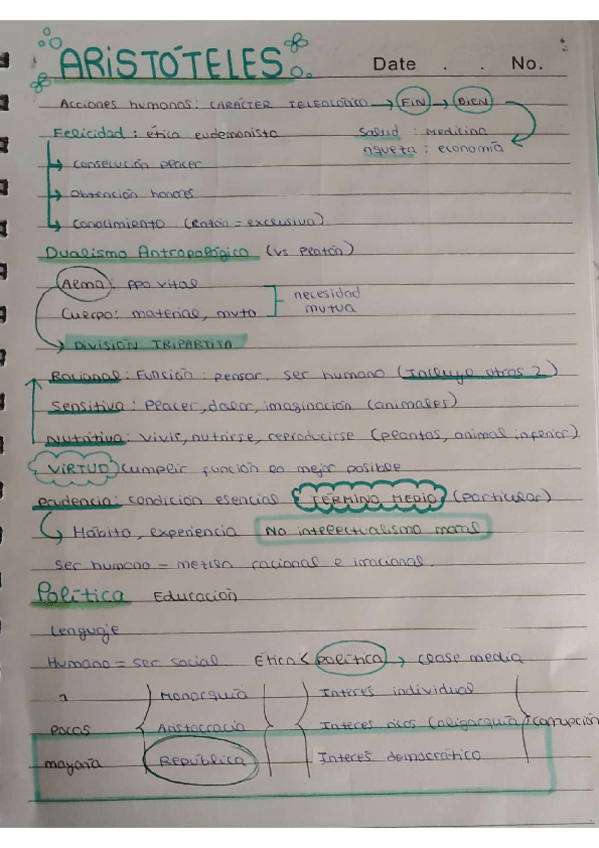 ARISTÓTELES Date . . No.
Acciones humanas: CARÁCTER TELEOLÓGICO → FIN → BIEN
Felicidad: ética eudemonista salud: medicina
riqueza: economía
→ consecución placer
→ obtención honores
→ conocimiento (Razón = exclusiva)
Dualismo Antropológico (vs Platón)
Alma: ppo vital
necesidad mutua
Cuerpo: material, muta
→ DIVISIÓN TRIPARTITA
Racional: Función: pensar, ser humano (Incluye otras 2)
Sensitiva: Placer, dolor, imaginación (animales)
Nutritiva: vivir, nutrirse, reproducirse (plantas, animal inferior)
VIRTUD Cumplir función lo mejor posible
prudencia: condición esencial TÉRMINO MEDIO (particular)
→ Hábito, experiencia No intelectualismo moral
Ser humano = mezcla racional e irracional.
Política Educación
Lenguaje
Humano = ser social Ética < política → clase media
1 Monarquía Interés individual
pocos Aristocracia Interés ricos (oligarquía) corrupción
mayoría República Interés democrático